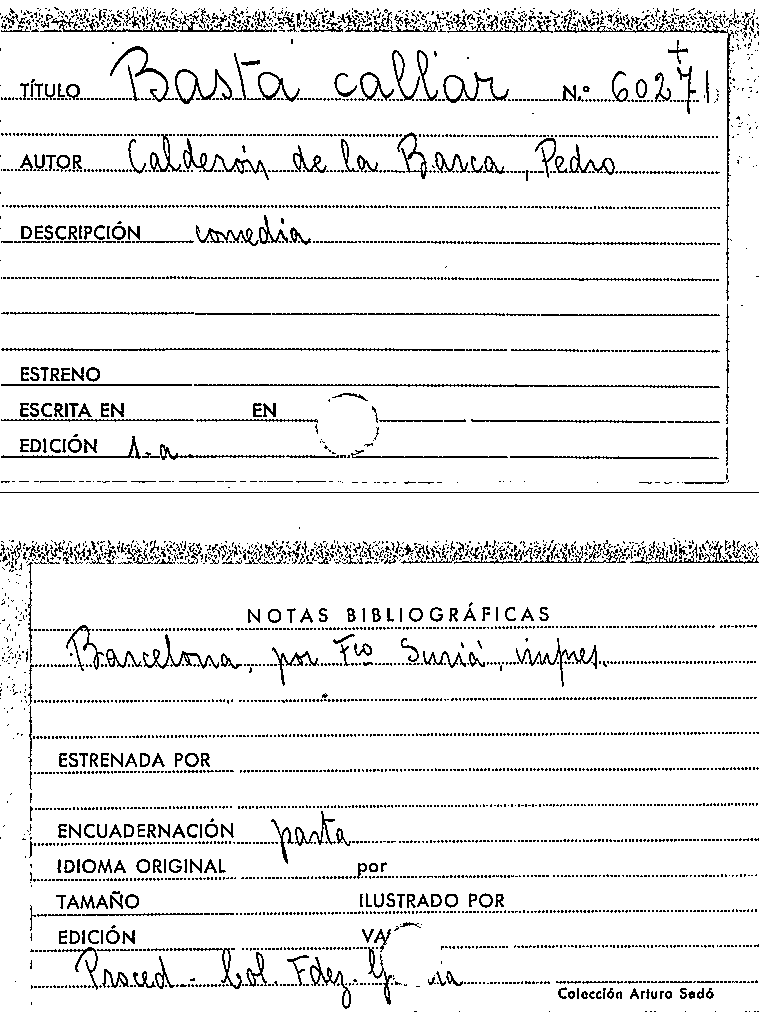 TÍTULO Basta callar N.º 60271
AUTOR Calderón de la Barca, Pedro
DESCRIPCIÓN comedia
ESTRENO
ESCRITA EN EN
EDICIÓN s.a.
NOTAS BIBLIOGRÁFICAS
Barcelona, por Fco Suriá, impres.
ESTRENADA POR
ENCUADERNACIÓN pasta
IDIOMA ORIGINAL por
TAMAÑO ILUSTRADO POR
EDICIÓN
Proced - Col. Fdez.
Colección Arturo Sedó